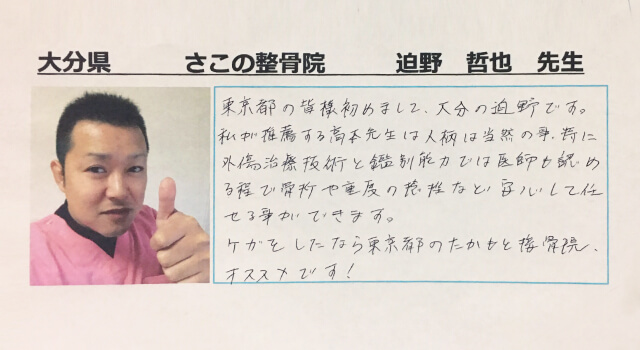 大分県 さこの整骨院 迫野 哲也 先生
東京都の皆様初めまして、大分の迫野です。
私が推薦する高本先生は人柄は当然の事、特に
外傷治療技術と鑑別能力では医師も認め
る程で骨折や重度の捻挫など安心して任
せる事ができます。
ケガをしたなら東京都のたかもと接骨院、
オススメです!